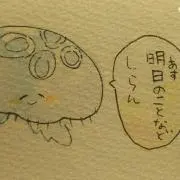 あす
明日のことなど
しらん